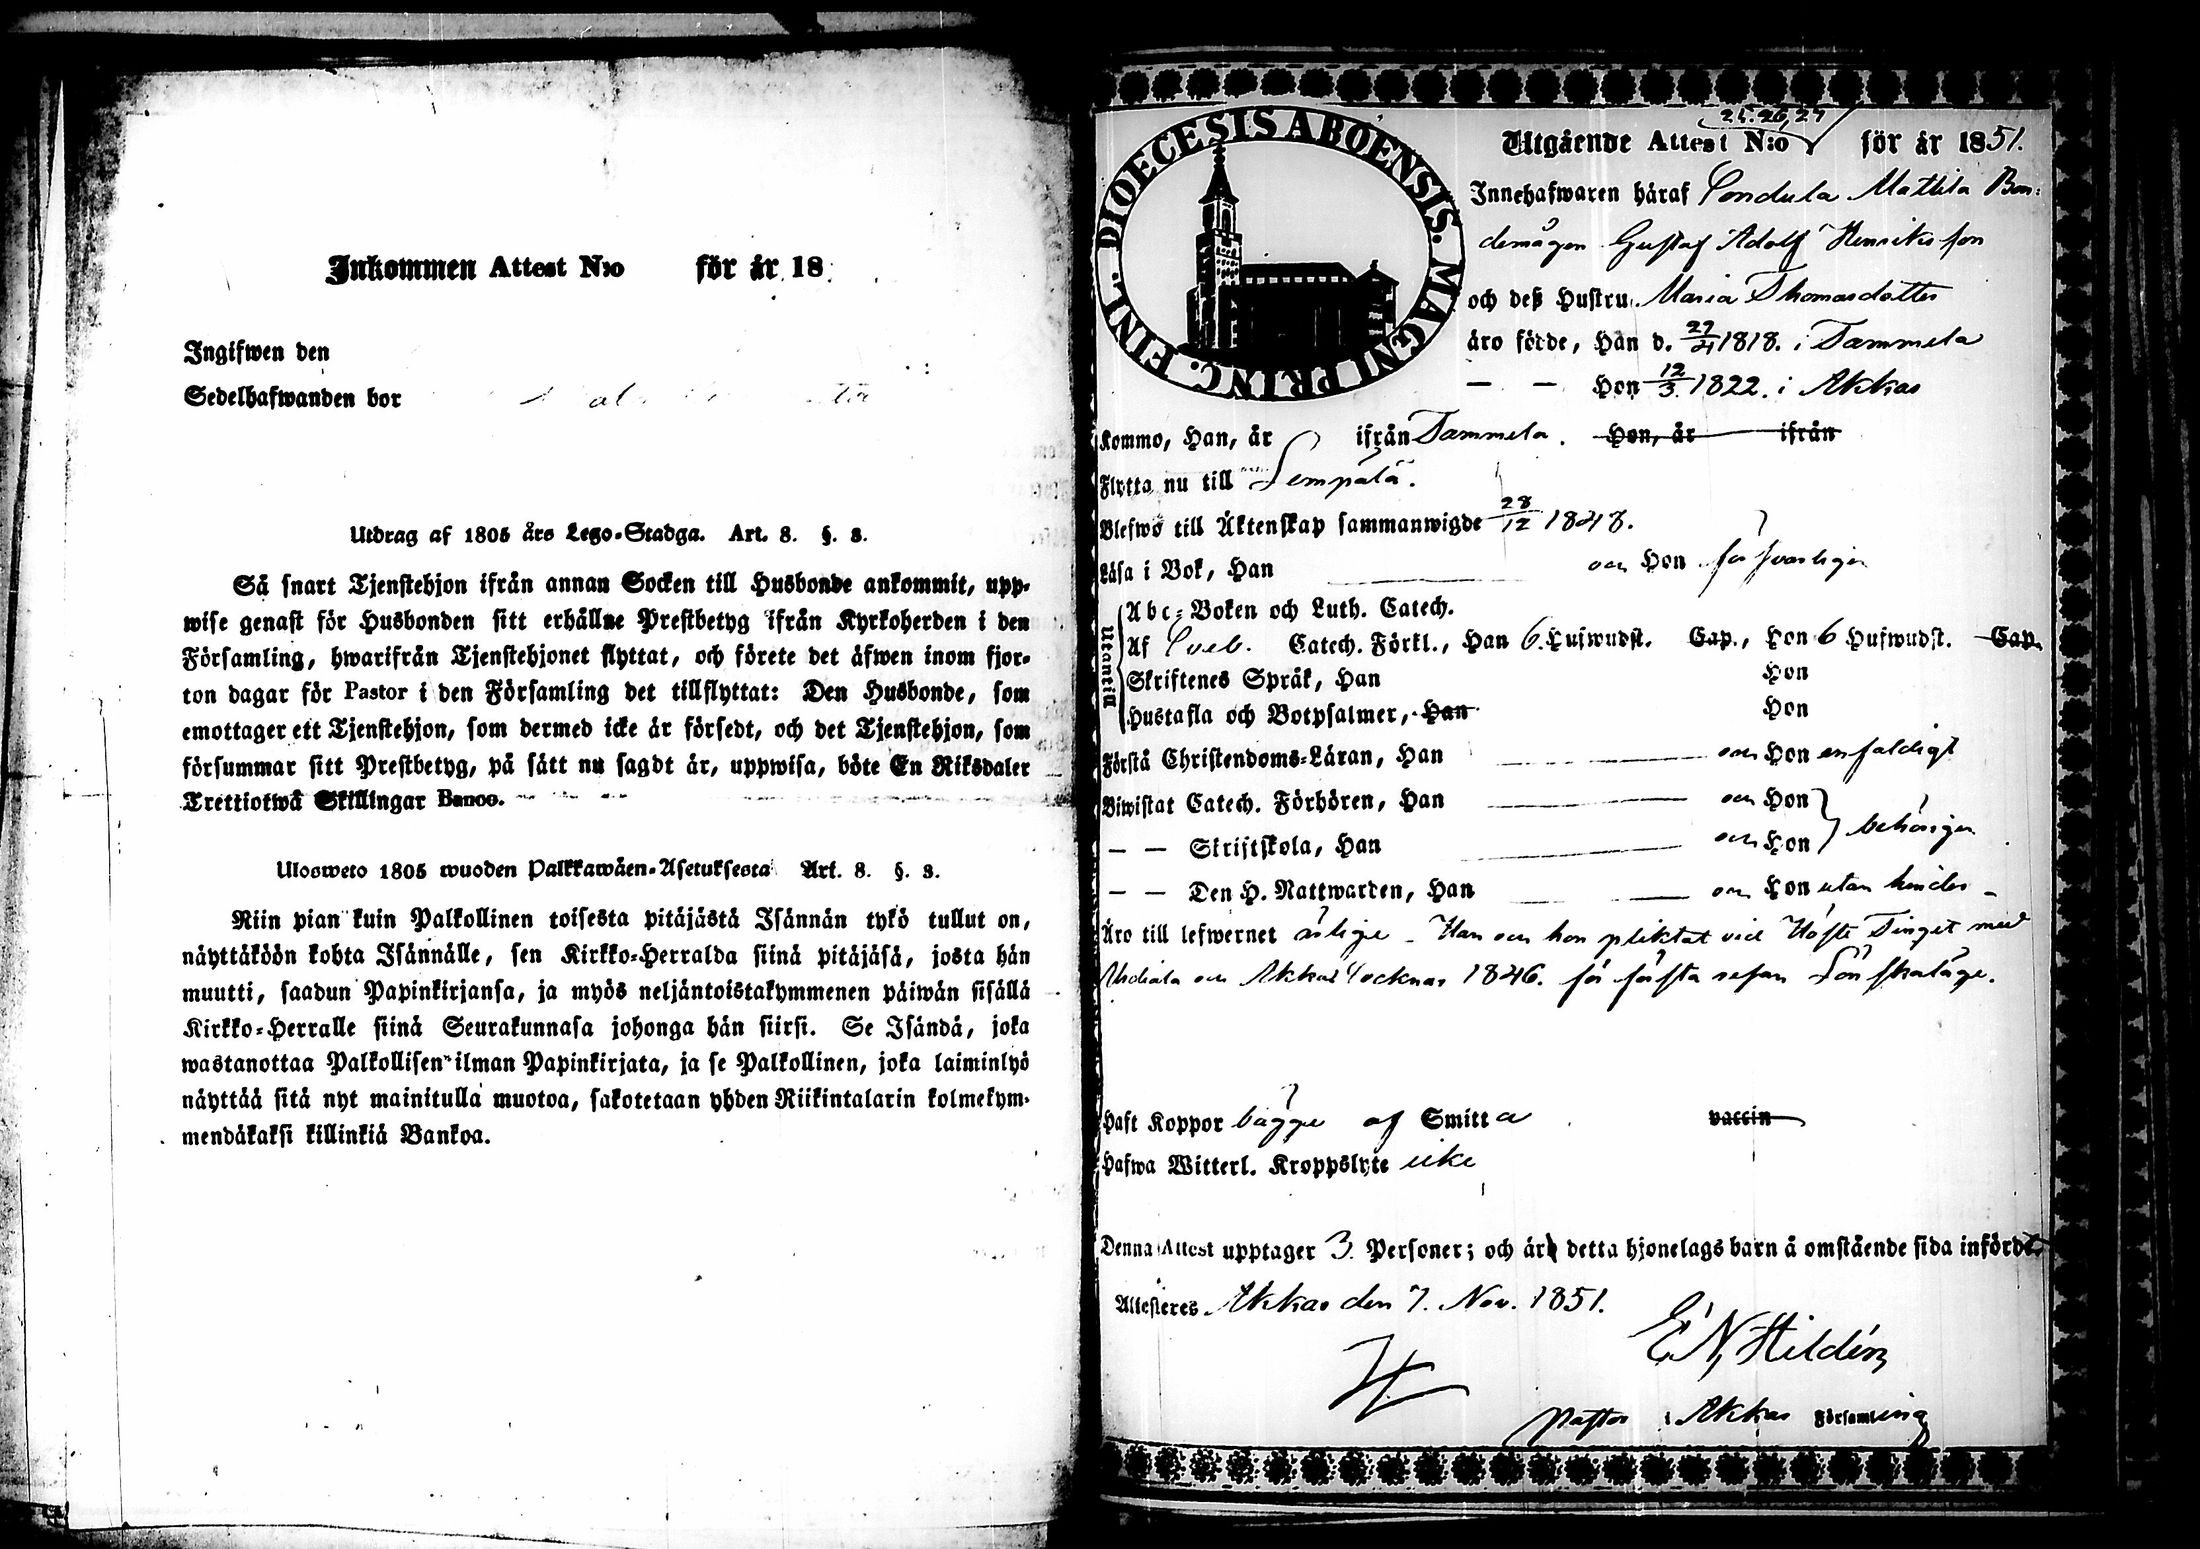 Inkommen Attest N:o för år 18
Ingifwen den
Sedelhafwanden bor
Utdrag af 1805 års Lego-Stadga. Art. 8. §. 3.
Så snart Tjenstehjon ifrån annan Socken till Husbonde ankommit, upp-
wise genast för Husbonden sitt erhållne Prestbetyg ifrån Kyrkoherden i den
Församling, hwarifrån Tjenstehjonet flyttat, och förete det äfwen inom fjor-
ton dagar för Pastor i den Församling det tillflyttat: Den Husbonde, som
emottager ett Tjenstehjon, som dermed icke är försedt, och det Tjenstehjon, som
försummar sitt Prestbetyg, på sätt nu sagdt är, uppwisa, böte En Riksdaler
Trettiotwå Skillingar Banco.
Ulosweto 1805 wuoden Palkkawäen-Asetuksesta Art. 8. §. 3.
Niin pian kuin Palkollinen toisesta pitäjästä Isännän tykö tullut on,
näyttäköön kohta Isännälle, sen Kirkko-Herralda siinä pitäjäsä, josta hän
muutti, saadun Papinkirjansa, ja myös neljäntoistakymmenen päiwän sisällä
Kirkko-Herralle siinä Seurakunnasa johonga hän siirsi. Se Isändä, joka
wastanottaa Palkollisen ilman Papinkirjata, ja se Palkollinen, joka laiminlyö
näyttää sitä nyt mainitulla muotoa, sakotetaan yhden Riikintalarin kolmekym-
mendäkaksi killinkiä Bankoa.
DIOECESIS ABOENSIS. MAGNI PRINC. FINL.
25. 26, 27
Utgående Attest N:o för år 1851.
Innehafwaren häraf Condula Mattila Bon-
demågen Gustaf Adolf Henriksson
och deß Hustru Maria Thomasdotter
äro födde, Han d. 27/4 1818. i Tammela
— — Hon 12/3 1822. i Akkas
Kommo, Han, år ifrån Tammela. Hon, år ifrån
Flytta nu till Lempälä.
Blefwo till Äktenskap sammanwigde 28/12 1848.
Läsa i Bok, Han och Hon försvarligen
Utantill
Abc-Boken och Luth. Catech.
Af Sveb. Catech. Förkl., Han 6 Hufwudst. Cap., Hon 6 Hufwudst. Cap.
Skriftenes Språk, Han Hon
Hustafla och Botpsalmer, Han Hon
Förstå Christendoms-Läran, Han och Hon enfaldigt
Biwistat Catech. Förhören, Han och Hon
— — Skriftskola, Han och Hon behörigen
— — Den H. Nattwarden, Han och Hon utan hinder
Äro till lefwernet ärlige. Han och hon pliktat vid Höste Tinget med
Urdiala och Akkas Socknar 1846. för första resan Lönskaläge.
Haft Koppor bägge af Smitta vaccin
Hafwa Witterl. Kroppslyte icke
Denna Attest upptager 3 Personer; och äro detta hjonelags barn å omstående sida införde.
Attesteres Akkas den 7. Nov. 1851.
E N Hildén
Pastor i Akkas Församling